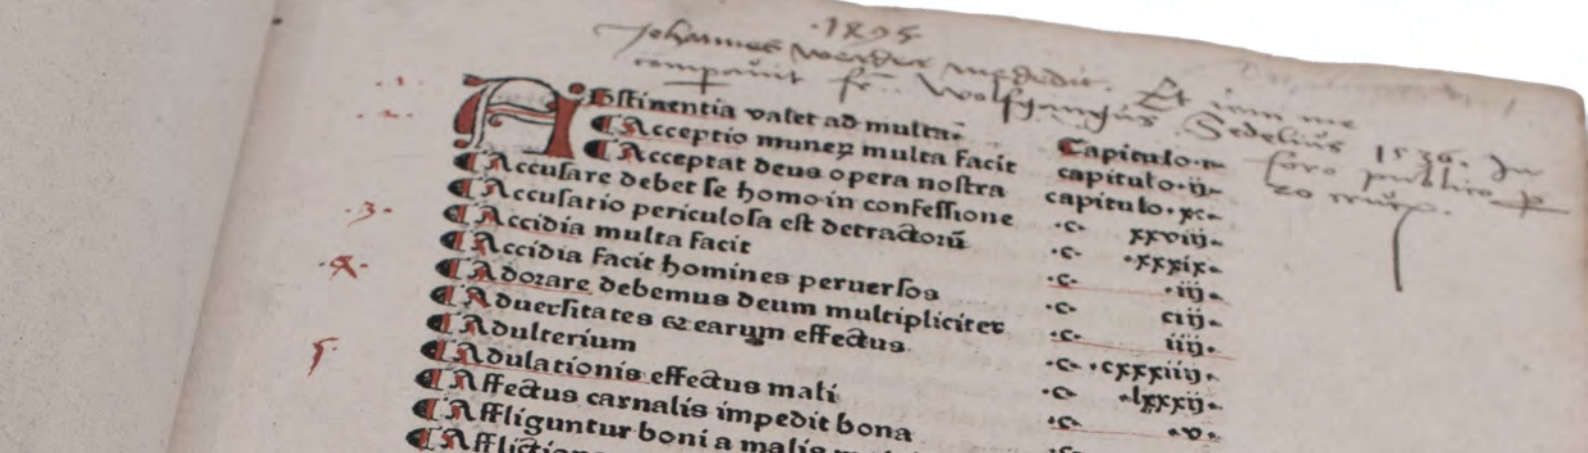 .1895.
Johannes werder me dedit. Et iam me
comparuit fr. Wolfgangus Sedelius 1536. In
foro publico p
20 cruc.
.1. Abstinentia valet ad multa. Capitulo.i.
.2. ¶Acceptio munerꝝ multa facit capitulo.ij.
¶Acceptat deus opera nostra capitulo.xc.
¶Accusare debet se homo in confessione .c. xxviij.
¶Accusatio periculosa est detractorū .c. .xxxix.
.3. ¶Accidia multa facit .c. .iij.
¶Accidia facit homines peruersos .c. ciij.
.4. ¶Adorare debemus deum multipliciter .c. iiij.
¶Aduersitates & earum effectus .c. .cxxxiiij.
¶Adulterium .c. .lxxxij.
5. ¶Adulationis effectus mali .c. .v.
¶Affectus carnalis impedit bona .c.
¶Affliguntur boni a malis